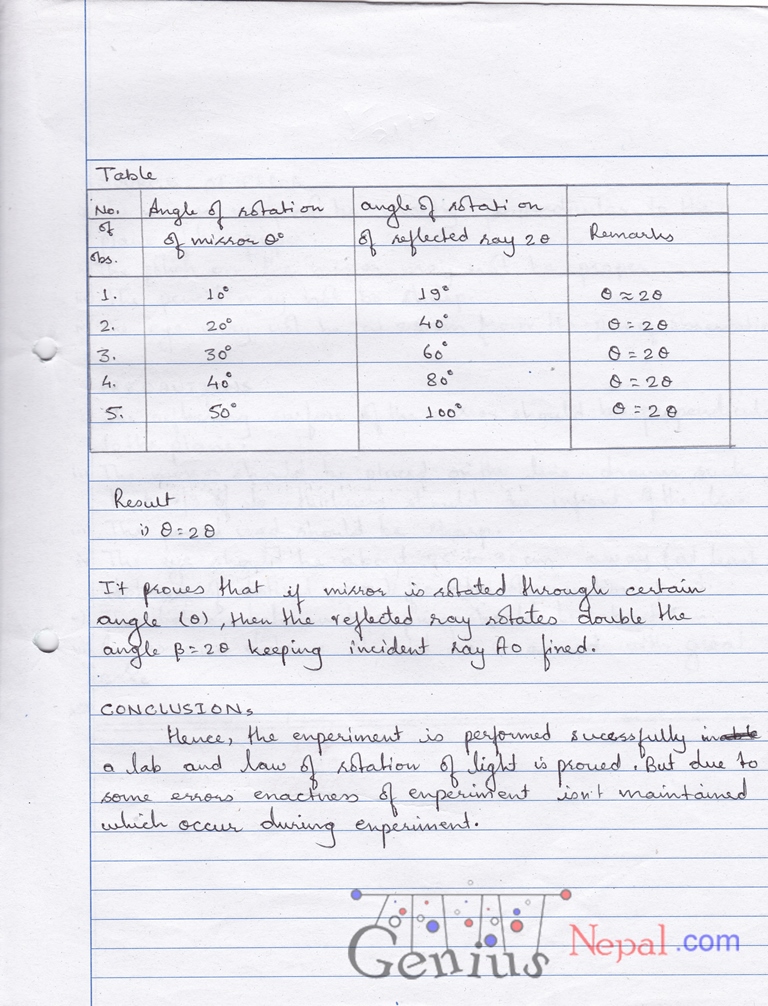 Table
No. of obs. Angle of rotation of mirror θ° angle of rotation of reflected ray 2θ Remarks
1. 10° 19° θ ≈ 2θ
2. 20° 40° θ = 2θ
3. 30° 60° θ = 2θ
4. 40° 80° θ = 2θ
5. 50° 100° θ = 2θ
Result
i) θ = 2θ
It proves that if mirror is rotated through certain
angle (θ), then the reflected ray rotates double the
angle β = 2θ keeping incident ray AO fixed.
CONCLUSION,
Hence, the experiment is performed sucessfully in
a lab and law of rotation of light is proved. But due to
some errors exactness of experiment isn't maintained
which occur during experiment.
Genius Nepal.com